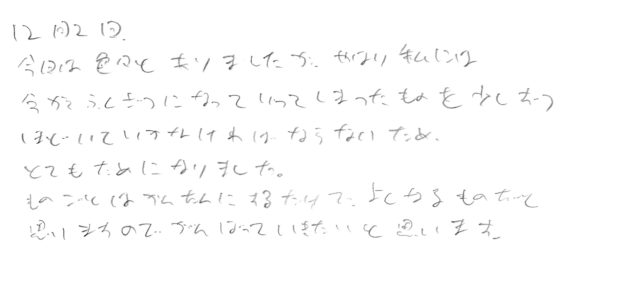 12月2日.
今日は色々とありましたが、やはり私には
今からふくざつになっていってしまったものを少しずつ
ほどいていかなければならないため、
とてもためになりました。
ものごとはかんたんに するだけで、よくなるものだと
思いますので、がんばっていきたいと思います。